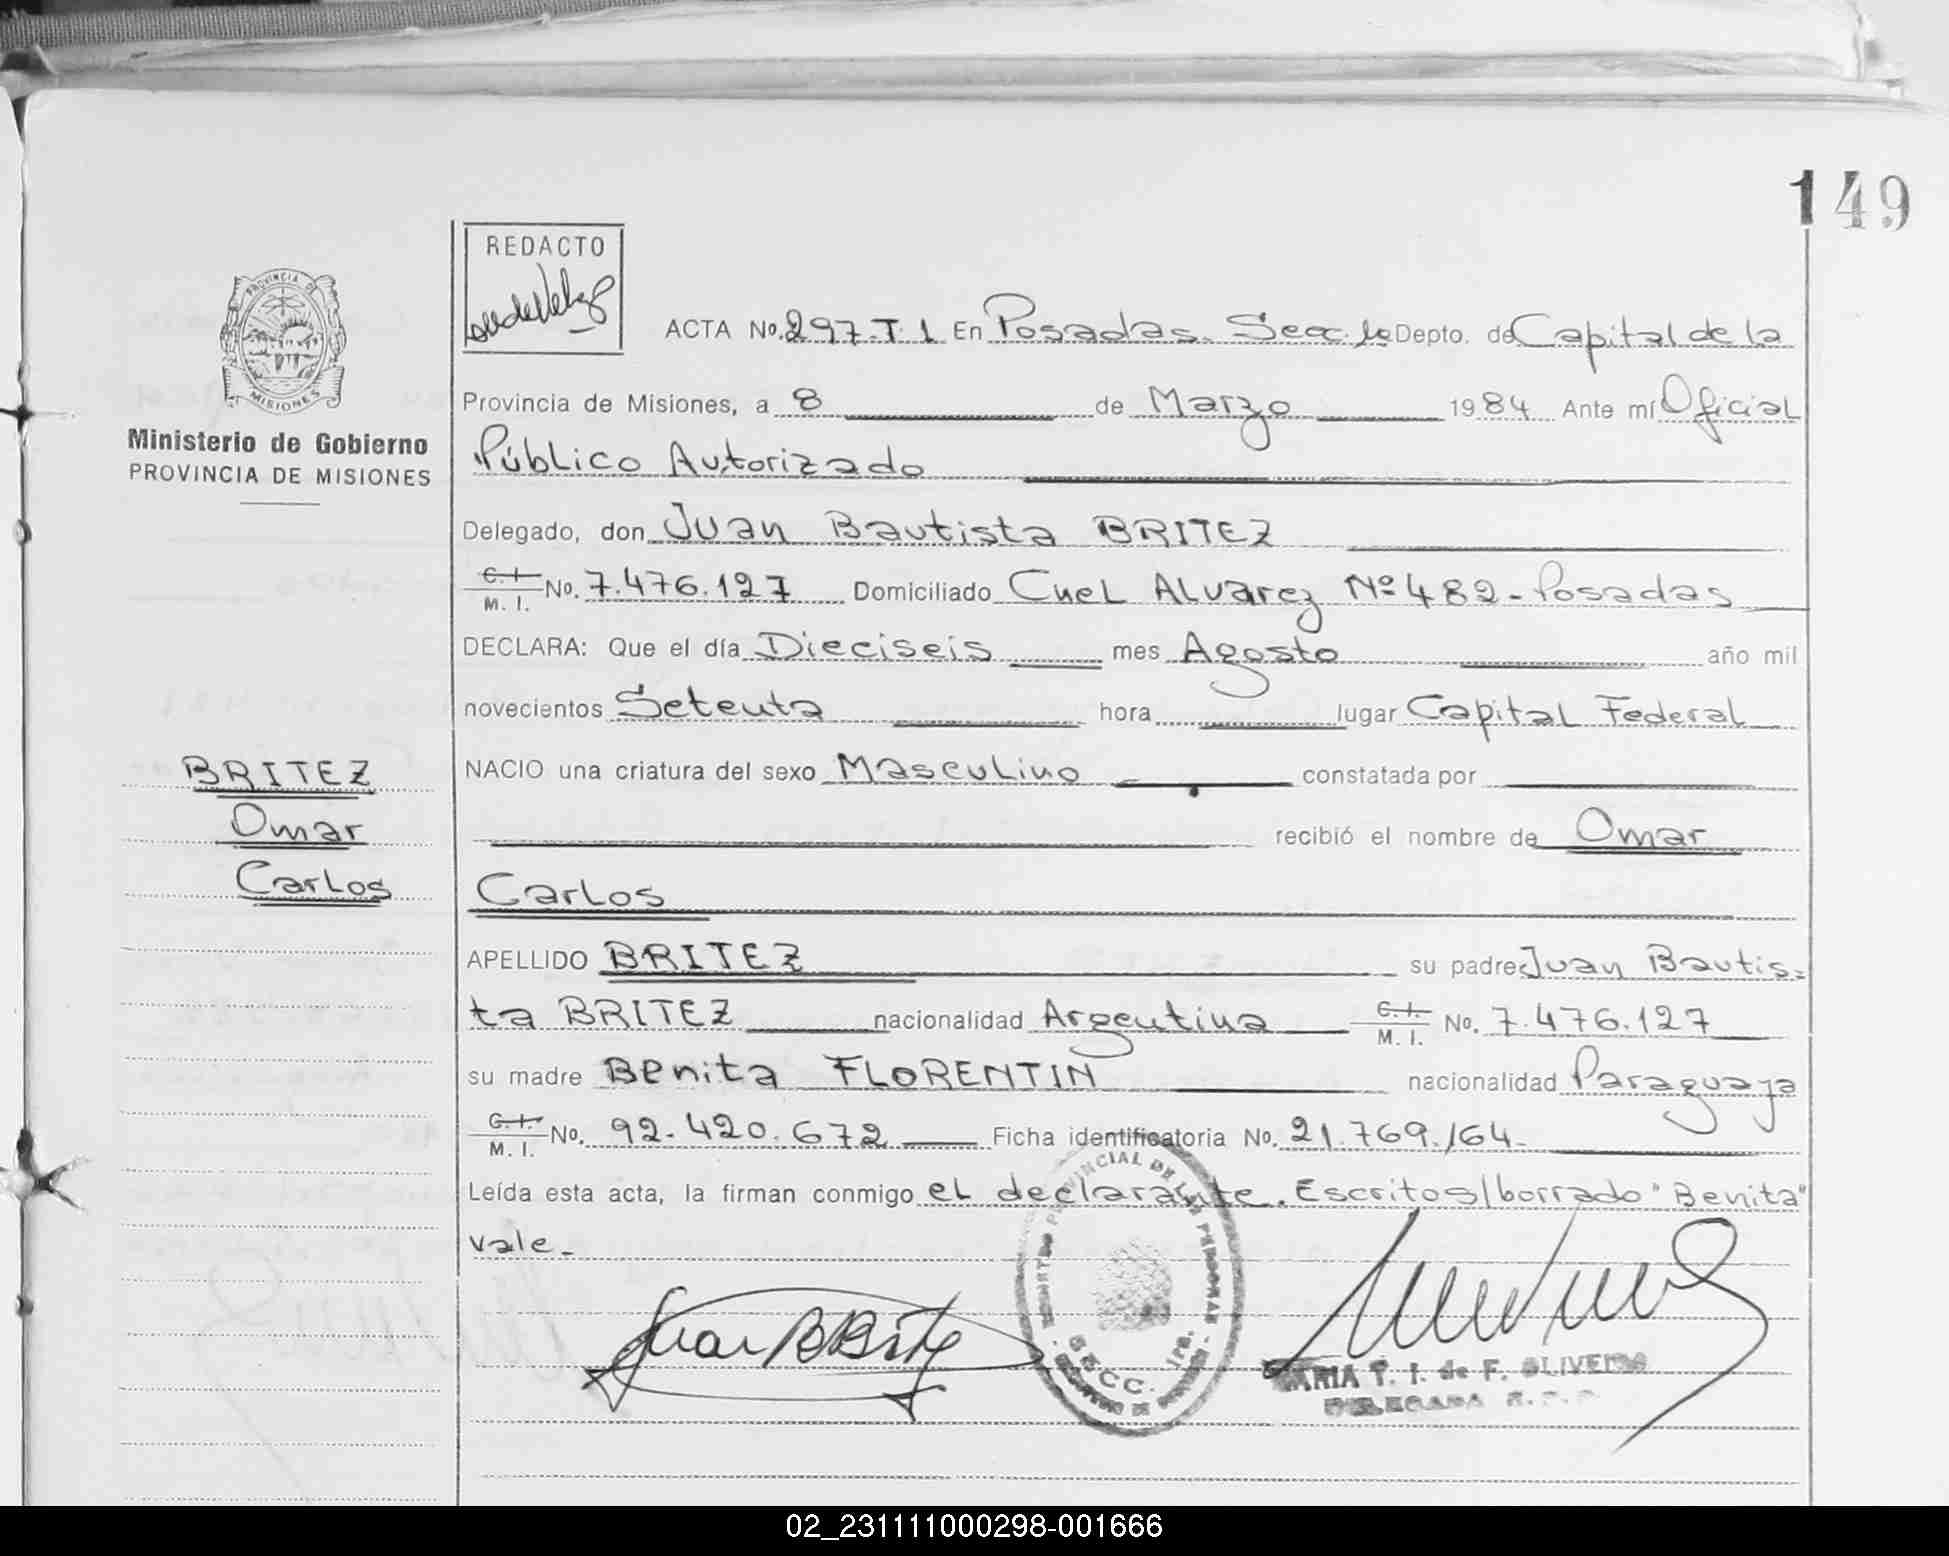 149
REDACTO
PROVINCIA DE
MISIONES
Ministerio de Gobierno
PROVINCIA DE MISIONES
ACTA No. 297.T.1 En Posadas. Secc. 1a Depto. de Capital de la
Provincia de Misiones, a 8 de Marzo 1984 Ante mí Oficial
Público Autorizado
Delegado, don Juan Bautista BRITEZ
C. I. M. I. No. 7.476.127 Domiciliado Cnel Alvarez Nº 482 - Posadas
DECLARA: Que el día Dieciseis mes Agosto año mil
novecientos Setenta hora lugar Capital Federal
NACIO una criatura del sexo Masculino constatada por
recibió el nombre de Omar
Carlos
BRITEZ
Omar
Carlos
APELLIDO BRITEZ su padre Juan Bautis=
ta BRITEZ nacionalidad Argentina C. I. M. I. No. 7.476.127
su madre Benita FLORENTIN nacionalidad Paraguaya
C. I. M. I. No. 92.420.672 Ficha identificatoria No. 21.769./64.
Leída esta acta, la firman conmigo el declarante. Escritos/borrado "Benita"
vale.
Juan B Britez
PROVINCIAL DE LAS PERSONAS
SECC. 1ra.
MARIA T. I. de F. OLIVEIRA
DELEGADA
02_231111000298-001666